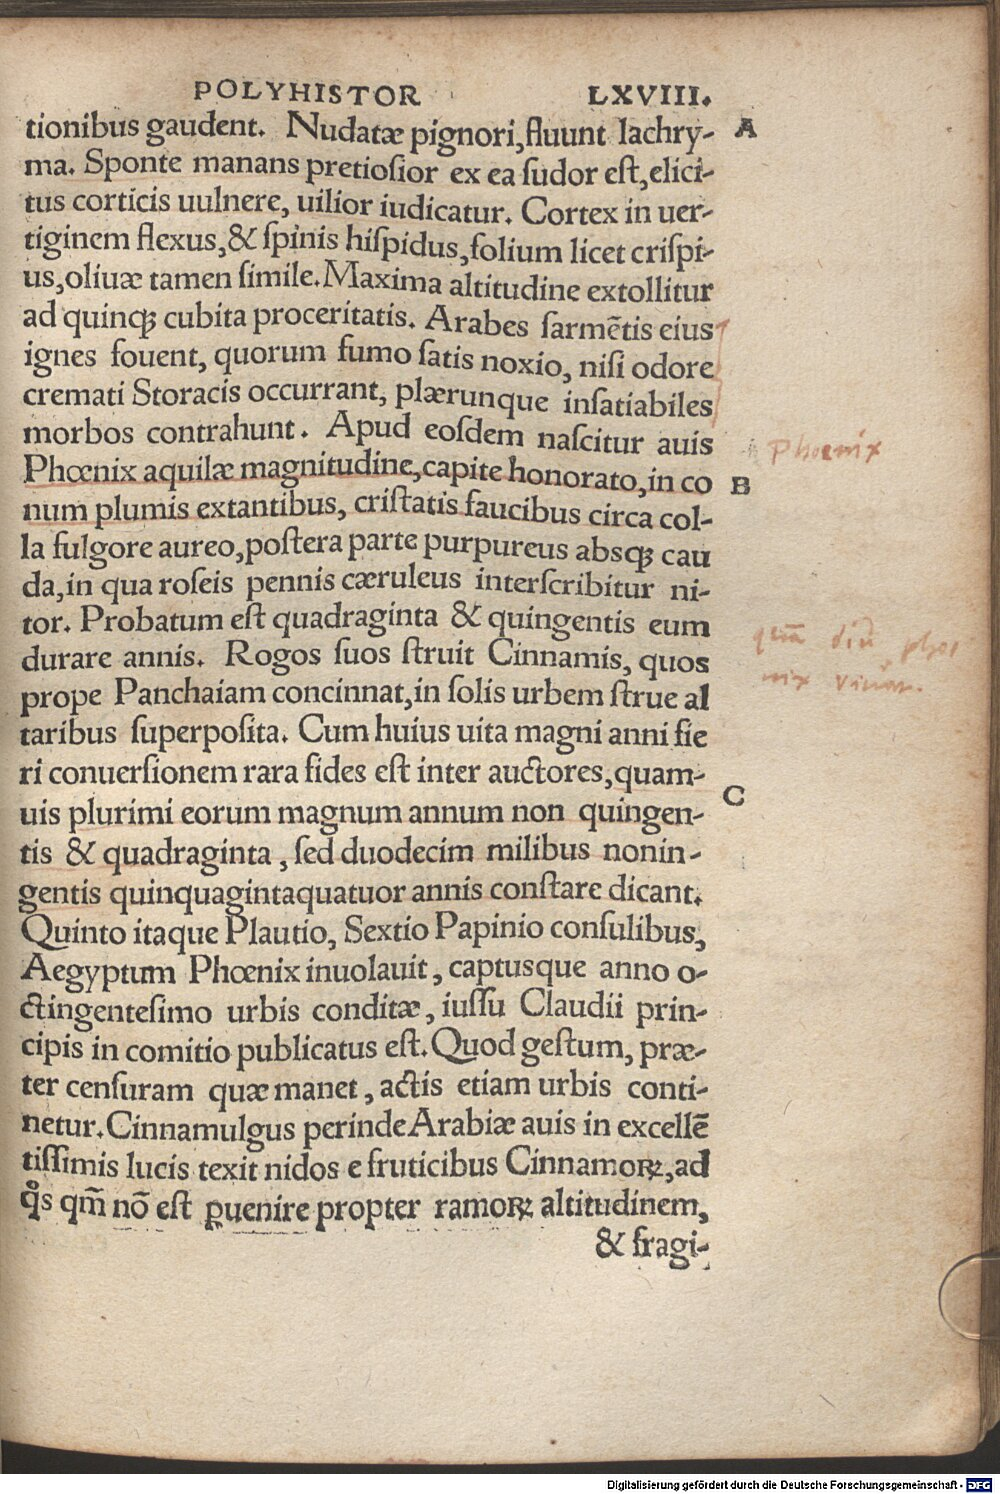 POLYHISTOR LXVIII.
tionibus gaudent. Nudatæ pignori, fluunt lachry- A
ma. Sponte manans pretiosior ex ea sudor est, elici-
tus corticis uulnere, uilior iudicatur. Cortex in uer-
tiginem flexus, & spinis hispidus, folium licet crispi-
us, oliuæ tamen simile. Maxima altitudine extollitur
ad quinqꝫ cubita proceritatis. Arabes sarmētis eius
ignes fouent, quorum fumo satis noxio, nisi odore
cremati Storacis occurrant, plærunque insatiabiles
morbos contrahunt. Apud eosdem nascitur auis
Phoenix
Phœnix aquilæ magnitudine, capite honorato, in co B
num plumis extantibus, cristatis faucibus circa col-
la fulgore aureo, postera parte purpureus absqꝫ cau
da, in qua roseis pennis cæruleus interscribitur ni-
tor. Probatum est quadraginta & quingentis eum
durare annis. Rogos suos struit Cinnamis, quos
prope Panchaiam concinnat, in solis urbem strue al
taribus superposita. Cum huius uita magni anni fie
ri conuersionem rara fides est inter auctores, quam-
uis plurimi eorum magnum annum non quingen- C
tis & quadraginta, sed duodecim milibus nonin-
gentis quinquagintaquatuor annis constare dicant.
Quinto itaque Plautio, Sextio Papinio consulibus,
Aegyptum Phœnix inuolauit, captusque anno o-
ctingentesimo urbis conditæ, iussu Claudii prin-
cipis in comitio publicatus est. Quod gestum, præ-
ter censuram quæ manet, actis etiam urbis conti-
netur. Cinnamulgus perinde Arabiæ auis in excellē
tissimis lucis texit nidos e fruticibus Cinnamoꝝ, ad
qͦs qm̄ nō est ꝑuenire propter ramoꝝ altitudinem,
& fragi-
Digitalisierung gefördert durch die Deutsche Forschungsgemeinschaft - DFG